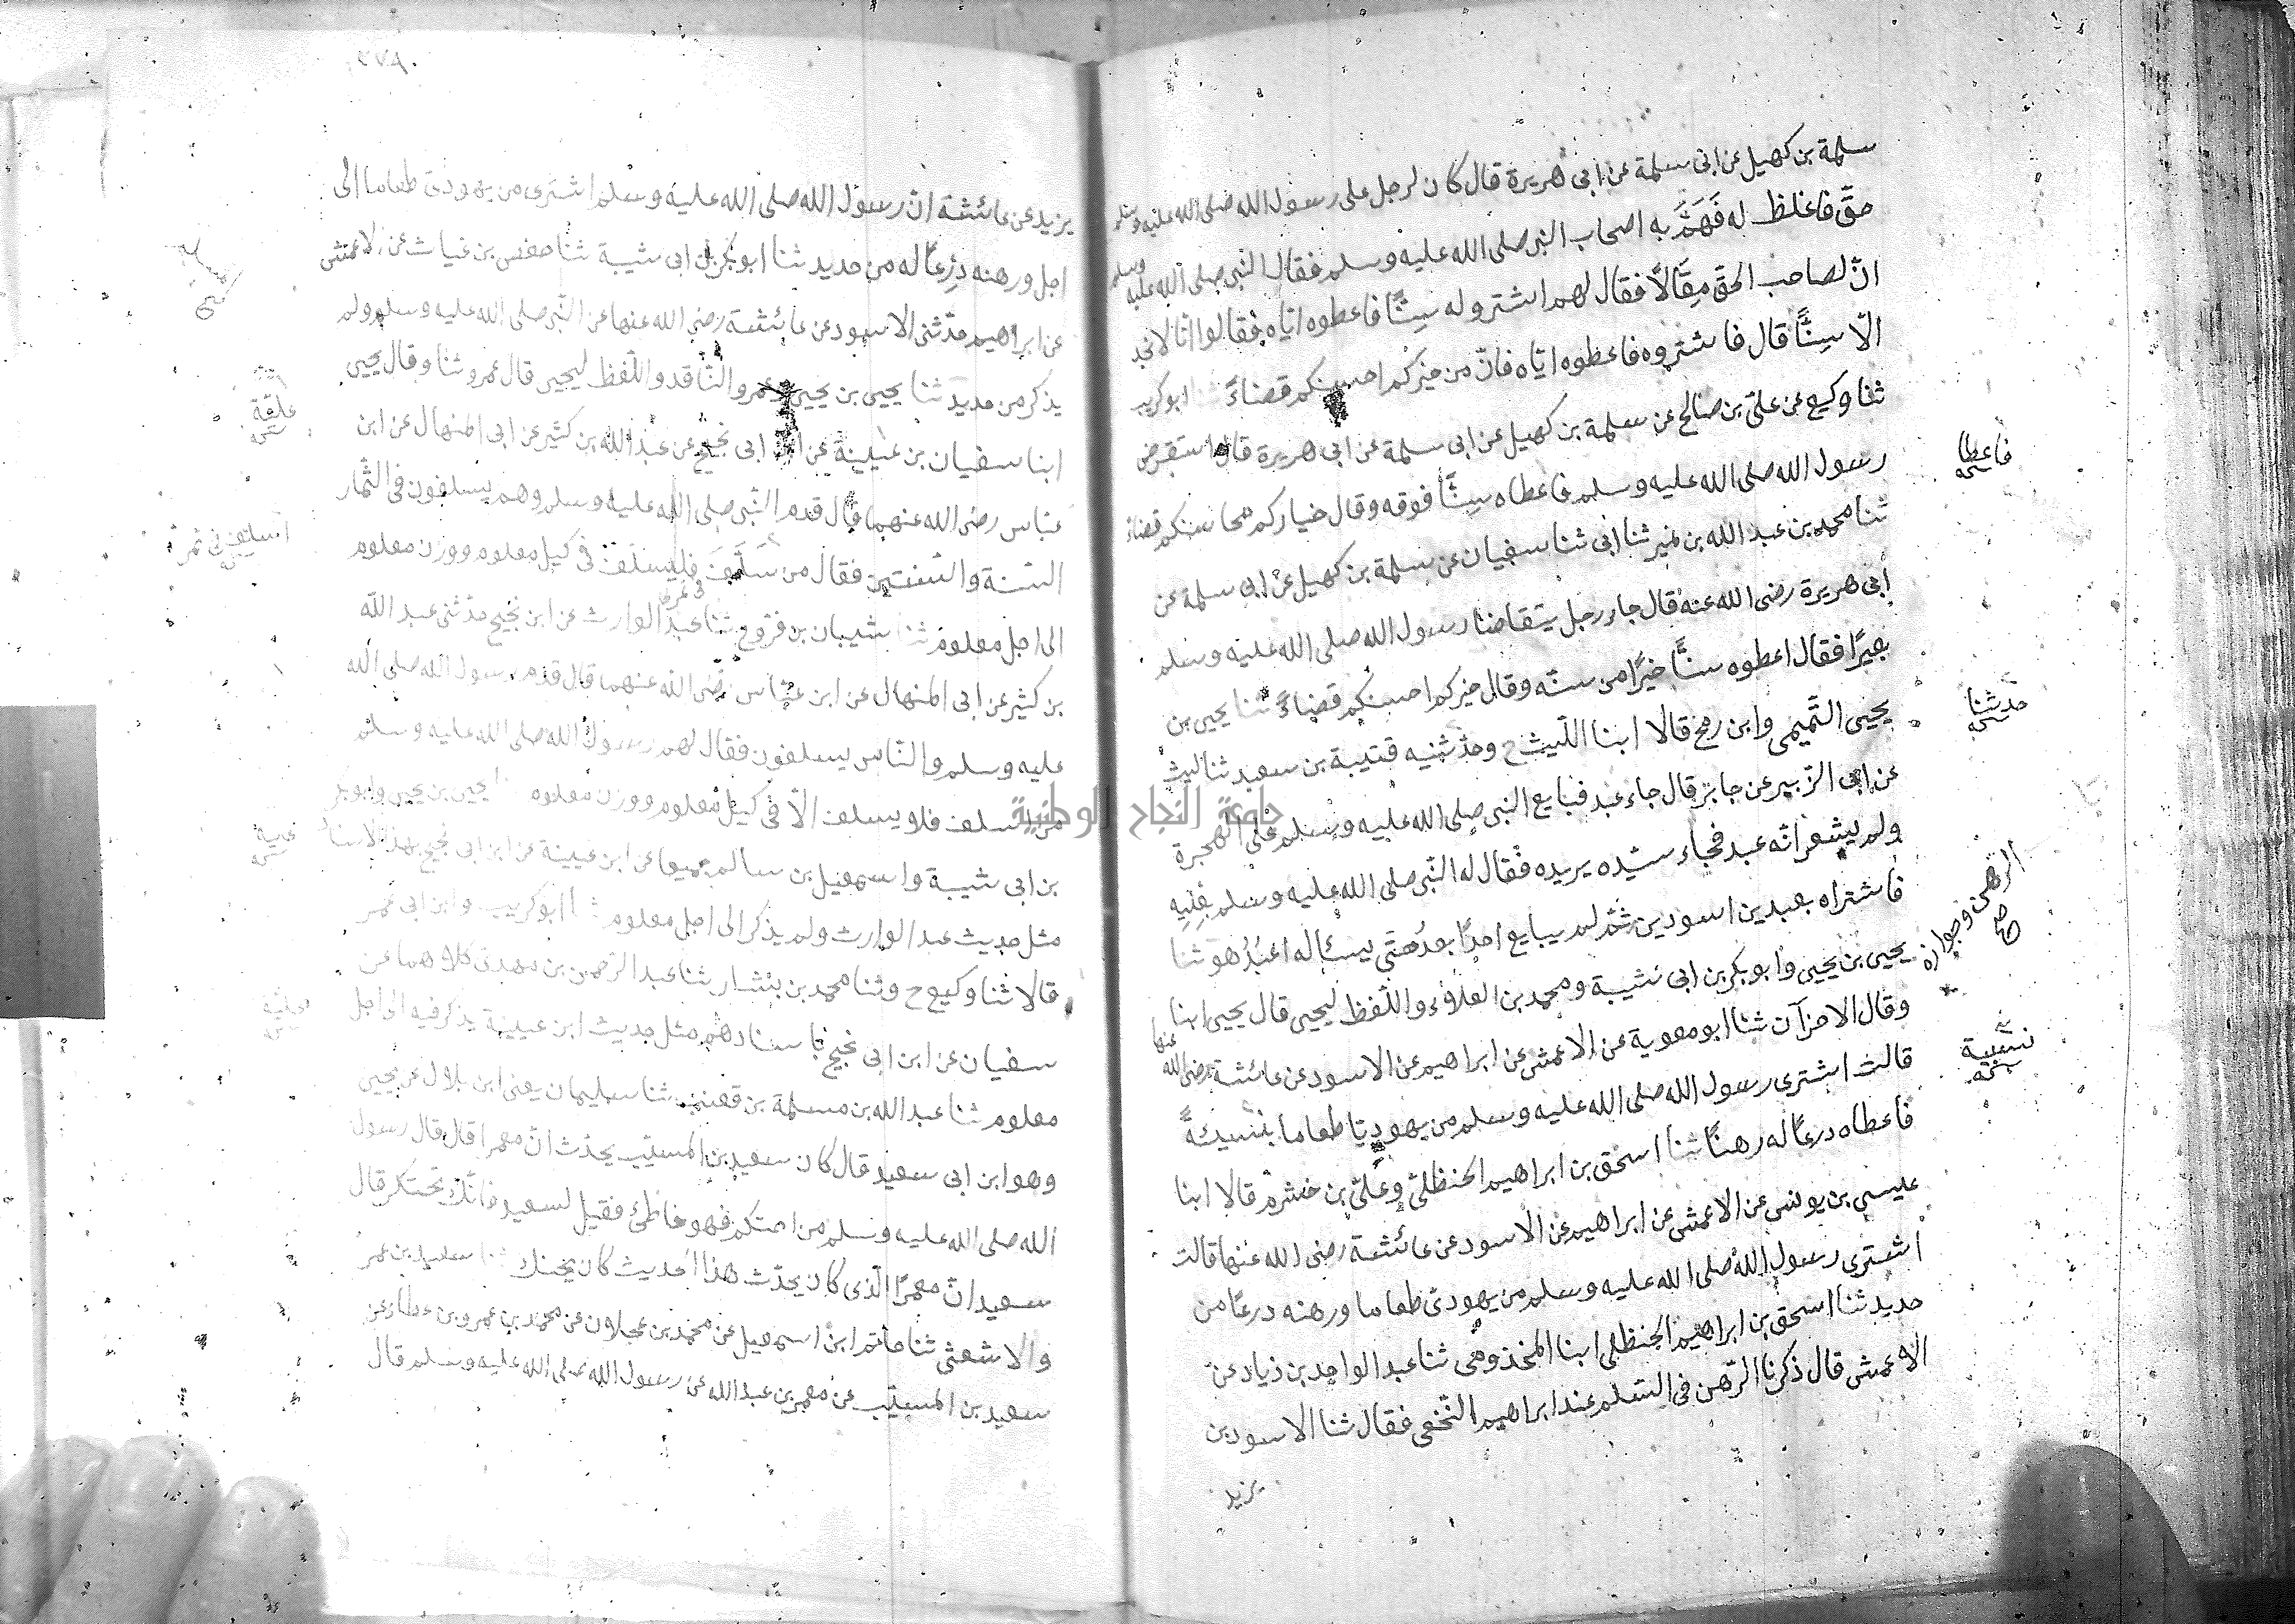 سلمة بن كهيل عن ابى سلمة عن ابى هريرة قال كان لرجل على رسول الله صلى الله عليه وسلم
حق فاغلظ له فَهَمَّ به اصحاب النبى صلى الله عليه وسلم فقال النبى صلى الله عليه وسلم
انّ لصاحب الحقّ مقالًا فقال لهم اشتروا له سِنًّا فاعطوه ايّاه فقالوا انّا لا نجد
الّا سِنًّا قال فاشتروه فاعطوه ايّاه فانّ من خيركم احسنكم قضاءً ثنا ابو كريب
ثنا وكيع عن علىّ بن صالح عن سلمة بن كهيل عن ابى سلمة عن ابى هريرة قال استقرض
رسول الله صلى الله عليه وسلم فاعطاه سِنًّا فوقه وقال خياركم محاسنكم قضاء
ثنا محمد بن عبد الله بن نمير ثنا ابى ثنا سفيان عن سلمة بن كهيل عن ابى سلمة عن
ابى هريرة رضى الله عنه قال جاء رجل يتقاضا رسول الله صلى الله عليه وسلم
بعيرًا فقال اعطوه سنًّا خيرًا من سنّه وقال خيركم احسنكم قضاءً ثنا يحيى بن
يحيى التّميمى وابن رمح قالا ابنا اللّيث ح وحدّثنيه قتيبة بن سعيد ثنا ليث
عن ابى الزّبير عن جابر قال جاء عبد فبايع النبى صلى الله عليه وسلم على الهجرة
ولم يشعر انّه عبد فجاء سيّده يريده فقال له النّبى صلى الله عليه وسلم بعنيه
فاشتراه بعبدين اسودين ثمّ لم يبايع احدًا بعدُ حتّى يسئاله اعبدٌ هو ثنا
يحيى بن يحيى وابو بكر بن ابى شيبة ومحمد بن العلاء واللّفظ ليحيى قال يحيى ابنا
وقال الاخرآن ثنا ابو معوية عن الاعمش عن ابراهيم عن الاسود عن عائشة رضى الله عنها
قالت اشترى رسول الله صلى الله عليه وسلم من يهوديّا طعاما بنسيئةً
فاعطاه درعًا له رهنًا ثنا اسحق بن ابراهيم الحنظلىّ وعلىّ بن خشرم قالا ابنا
عيسى بن يونس عن الاعمش عن ابراهيم عن الاسود عن عائشة رضى الله عنها قالت
اشترى رسول الله صلى الله عليه وسلم من يهودىّ طعاما ورهنه درعًا من
حديد ثنا اسحق بن ابراهيم الحنظلى ابنا المخذومى ثنا عبد الواحد بن ذياد عن
الاعمش قال ذكرنا الرّهن فى السّلم عند ابراهيم النّخعى فقال ثنا الاسود بن
يزيد
فاعطا
حدثنا
الرهن وجوازه
نسية
٢٧٨
يزيد عن عائشة انّ رسول الله صلى الله عليه وسلم اشترى من يهودىّ طعاما الى
اجل ورهنه دِرعًا له من حديد ثنا ابو بكر بن ابى شيبة ثنا حفص بن غياث عن الاعمش
عن ابراهيم حدّثنى الاسود عن عائشة رضى الله عنها عن النّبى صلى الله عليه وسلم ولم
يذكر من حديد ثنا يحيى بن يحيى وعمرو النّاقد واللّفظ ليحيى قال عمرو ثنا وقال يحيى
ابنا سفيان بن عيينة عن ابن ابى نجيح عن عبد الله بن كثير عن ابى المنهال عن ابن
عبّاس رضى الله عنهما قال قدم النّبى صلى الله عليه وسلم وهم يسلفون فى الثّمار
السّنة والسّنتين فقال من سَلَّفَ فليسلّف فى كيل معلوم ووزن معلوم
الى اجل معلوم ثنا شيبان بن فرّوخ ثنا عبد الوارث عن ابن نجيح حدّثنى عبد الله
بن كثير عن ابى المنهال عن ابن عبّاس رضى الله عنهما قال قدم رسول الله صلى الله
عليه وسلم والنّاس يسلفون فقال لهم رسول الله صلى الله عليه وسلم
من اسلف فلا يسلف الّا فى كيل معلوم ووزن معلوم يحيى بن يحيى وابو بكر
بن ابى شيبة واسمعيل بن سالم جميعا عن ابن عيينة عن ابن ابى نجيح بهذا الاسناد
مثل حديث عبد الوارث ولم يذكر الى اجل معلوم ثنا ابو كريب وابن ابى عمر
قالا ثنا وكيع ح وثنا محمد بن بشار ثنا عبد الرّحمن بن مهدى كلاهما عن
سفيان عن ابن ابى نجيح باسنادهم مثل حديث ابن عيينة يذكر فيه الى اجل
معلوم ثنا عبد الله بن مسلمة بن قعنب ثنا سليمان يعنى ابن بلال عن يحيى
وهو ابن ابى سعيد قال كان سعيد بن المسيّب يحدّث انّ معمرا قال قال رسول
الله صلى الله عليه وسلم من احتكر فهو خاطئ فقيل لسعيد فانّك تحتكر قال
سعيد انّ معمرًا الّذى كان يحدّث هذا الحديث كان يحتكر ثنا سعيد بن عمر
والاشعثى ثنا حاتم ابن اسمعيل عن محمد بن عجلان عن محمد بن عمرو بن عطاء عن
سعيد بن المسيّب عن معمر بن عبد الله عن رسول الله صلى الله عليه وسلم قال
جامعة النجاح الوطنية